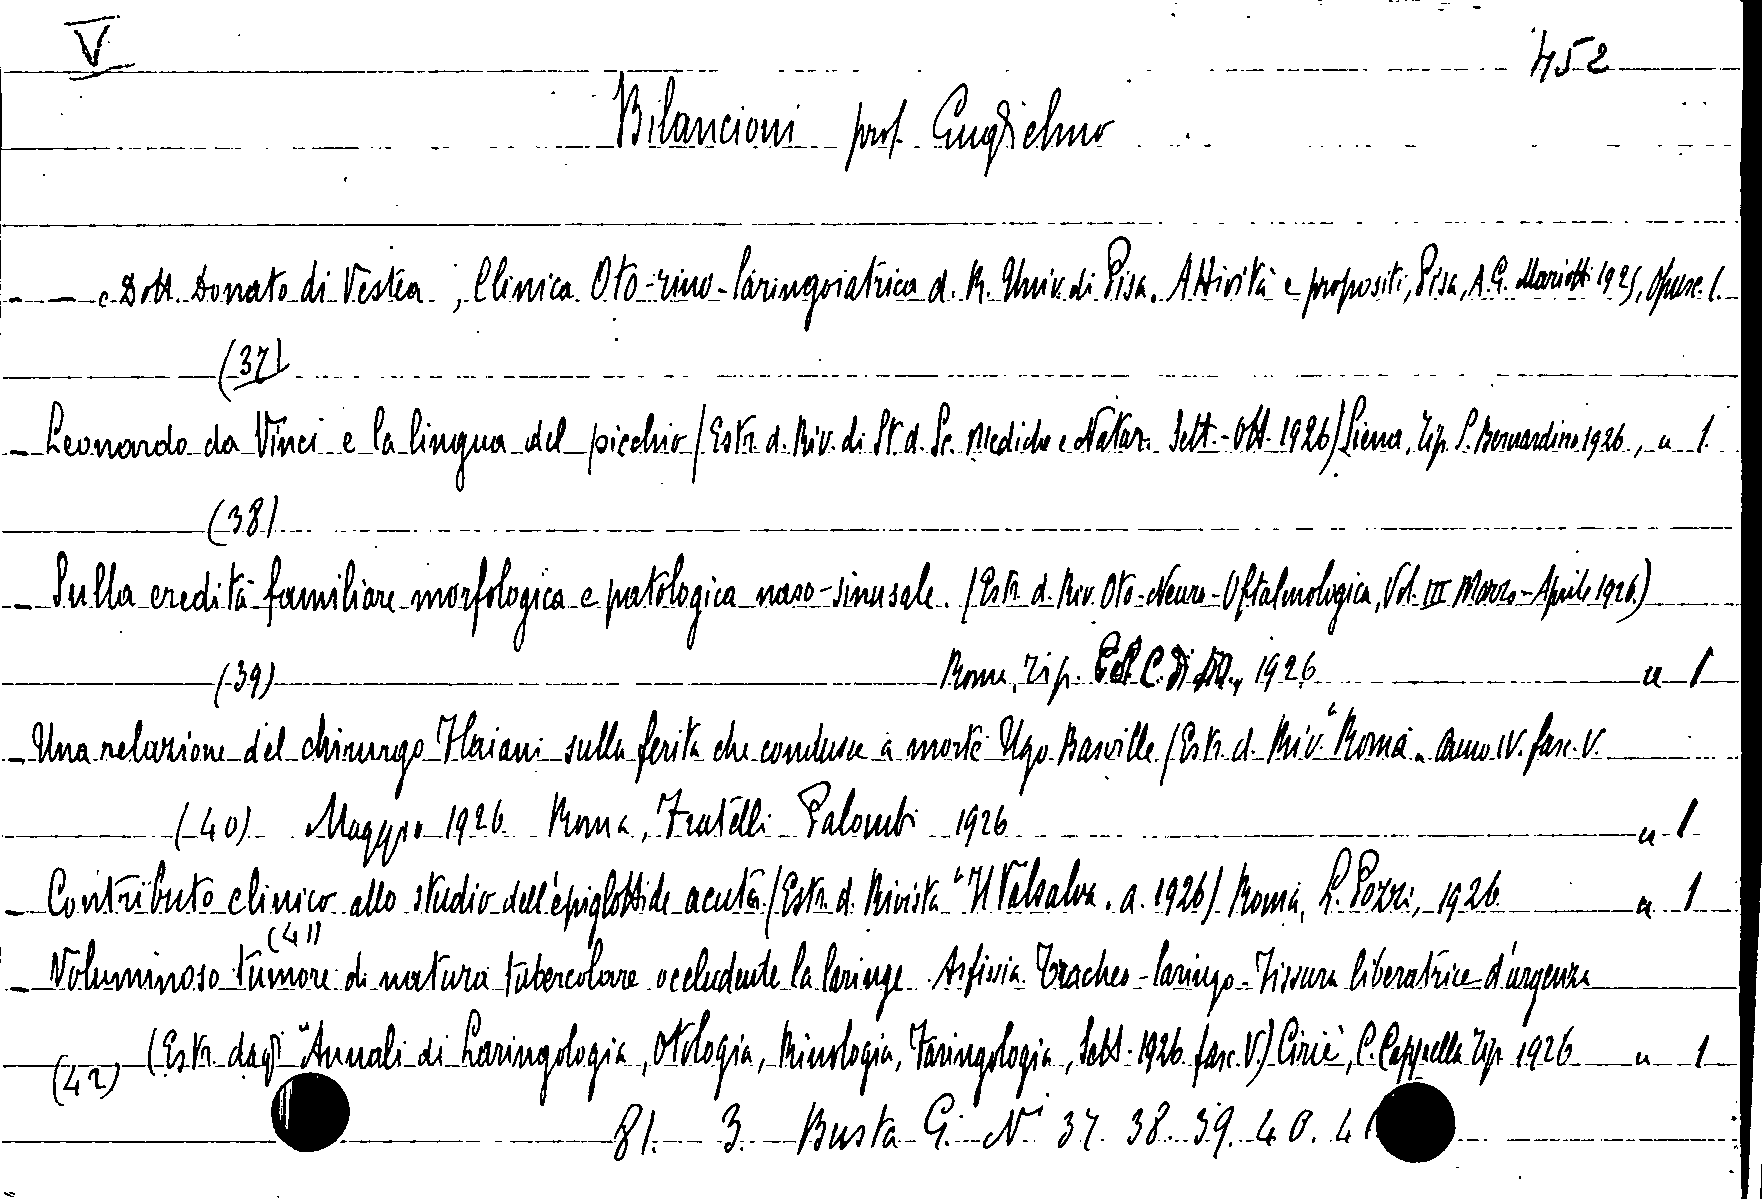 V 452
Bilancioni prof. Guglielmo
- - e Dott. Donato di Vestea, Clinica Oto-rino-laringoiatrica d. R. Univ. di Pisa. Attività e propositi, Pisa, A.G. Mariotti 1925, Opusc. 1.
(37)
- Leonardo da Vinci e la lingua del picchio (Estr. d. Riv. di St. d. Sc. Mediche e Natur. Sett.-Ott. 1926) Siena, Tip. S. Bernardino 1926, " 1
(38)
- Sulla eredità familiare morfologica e patologica naso-sinusale. (Estr. d. Riv. Oto-Neuro-Oftalmologica, Vol. III Marzo-Aprile 1926.)
(39) Roma, Tip. 1926 " 1
- Una relazione del chirurgo Flaiani sulla ferita che condusse a morte Ugo Basville (Estr. d. Riv. "Roma" Anno IV. fasc. V.
(40) Maggio 1926 Roma, Fratelli Palombi 1926 " 1
- Contributo clinico allo studio dell'epiglottide acuta. (Estr. d. Rivista "Il Valsalva. a. 1926) Roma, L. Pozzi, 1926 " 1
(41)
- Voluminoso tumore di natura tubercolare occludente la laringe. Asfissia. Tracheo-laringo-fissura liberatrice d'urgenza
(42) (Estr. dagli "Annali di Laringologia, Otologia, Rinologia, Faringologia, Sett. 1926 fasc. V.) Ciriè, C. Cappella Tip. 1926 " 1
81. 3. Busta G. Ni 37. 38. 39. 40. 41